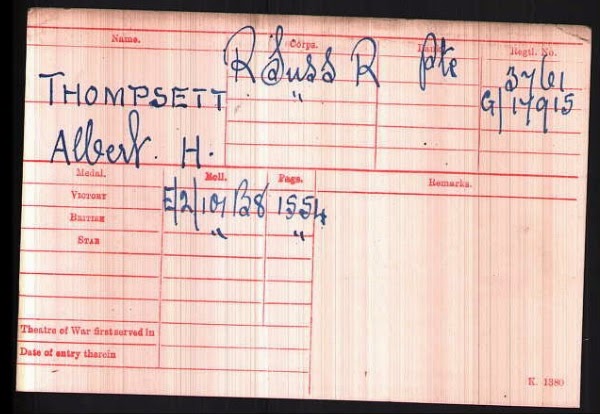 Name. Corps. Rank. Regtl. No.
R Suss R Pte 3761
THOMPSETT " G/17915
Albert. H.
Medal. Roll. Page. Remarks.
VICTORY E/2/101/B8 1554
BRITISH " "
STAR
Theatre of War first served in
Date of entry therein
K. 1380